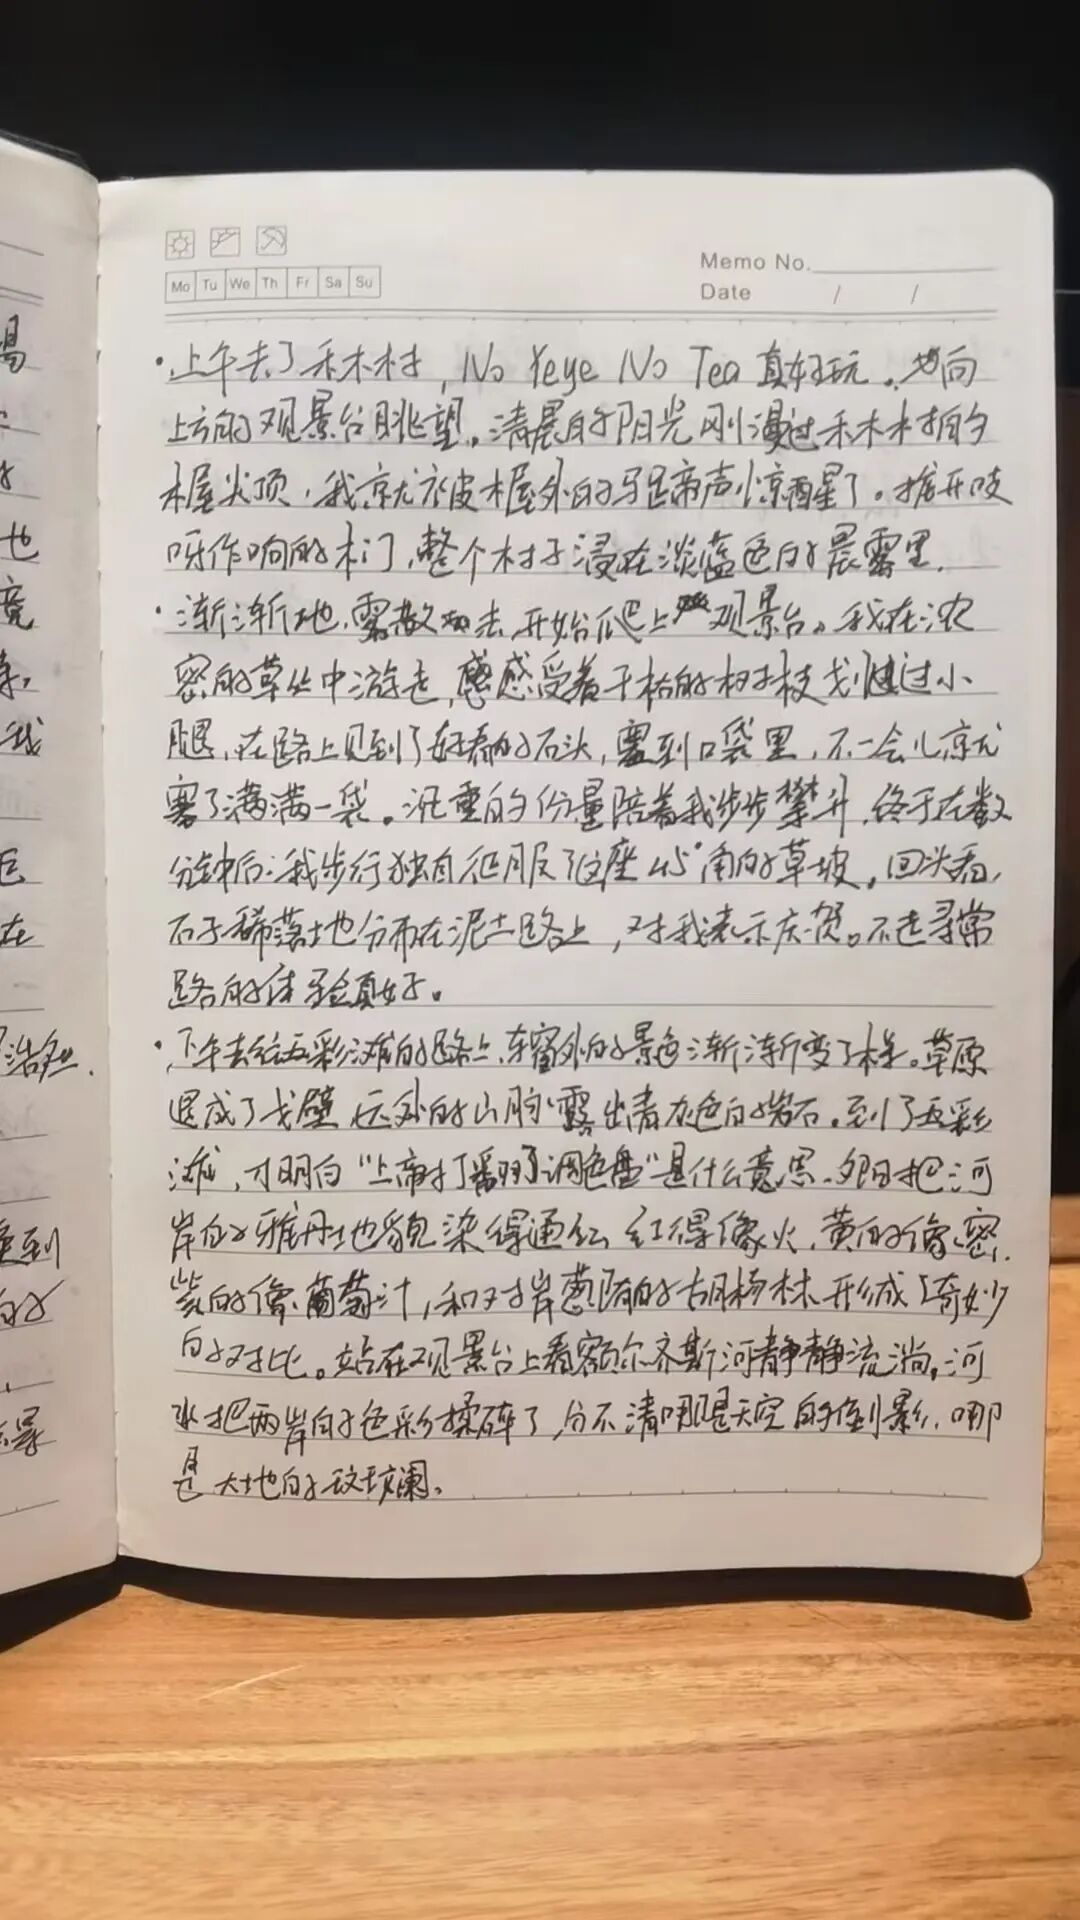 Mo Tu We Th Fr Sa Su
Memo No.
Date / /
·上午去了禾木村，No Yeye No Tea 真好玩。向
上方的观景台眺望。清晨的阳光刚漫过禾木村的
木屋尖顶，我就被木屋外的马蹄声惊醒了。推开吱
呀作响的木门，整个村子浸在淡蓝色的晨雾里.
·渐渐地，雾散去，开始爬上观景台。我在浓
密的草丛中游走，感受着干枯的树枝划过小
腿，在路上见到了好看的石头，塞到口袋里，不一会儿就
塞了满满一袋。沉重的份量陪着我步步攀升，终于在数
分钟后：我步行独自征服了这座45°角的草坡。回头看，
石子稀落地分布在泥土路上，对我表示庆贺。不走寻常
路的体验真好。
·下午去往五彩滩的路上，车窗外的景色渐渐变了样。草原
退成了戈壁，远处的山脉露出青灰色的岩石。到了五彩
滩，才明白“上帝打翻了调色盘”是什么意思。夕阳把河
岸的雅丹地貌染得通红，红得像火，黄的像蜜，
紫的像葡萄汁，和对岸葱郁的胡杨林形成了奇妙
的对比。站在观景台上看额尔齐斯河静静流淌。河
水把两岸的色彩揉碎了，分不清哪是天空的倒影，哪
是大地的斑斓。
喝
也
竟
我
在
到
的